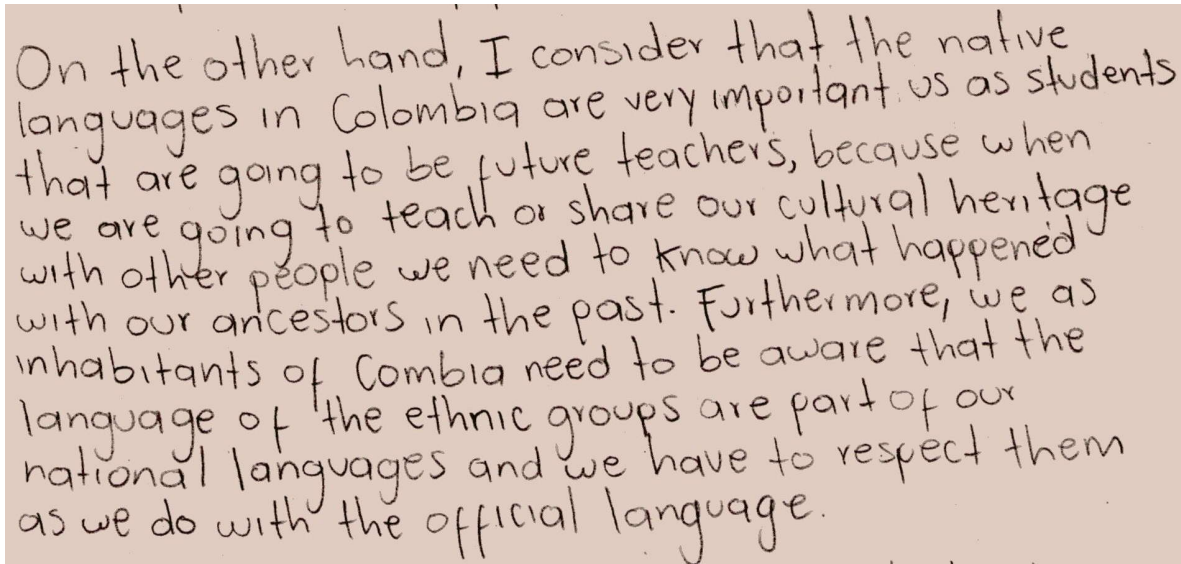 On the other hand, I consider that the native
languages in Colombia are very important us as students
that are going to be future teachers, because when
we are going to teach or share our cultural heritage
with other people we need to know what happened
with our ancestors in the past. Furthermore, we as
inhabitants of Combia need to be aware that the
language of the ethnic groups are part of our
national languages and we have to respect them
as we do with the official language.